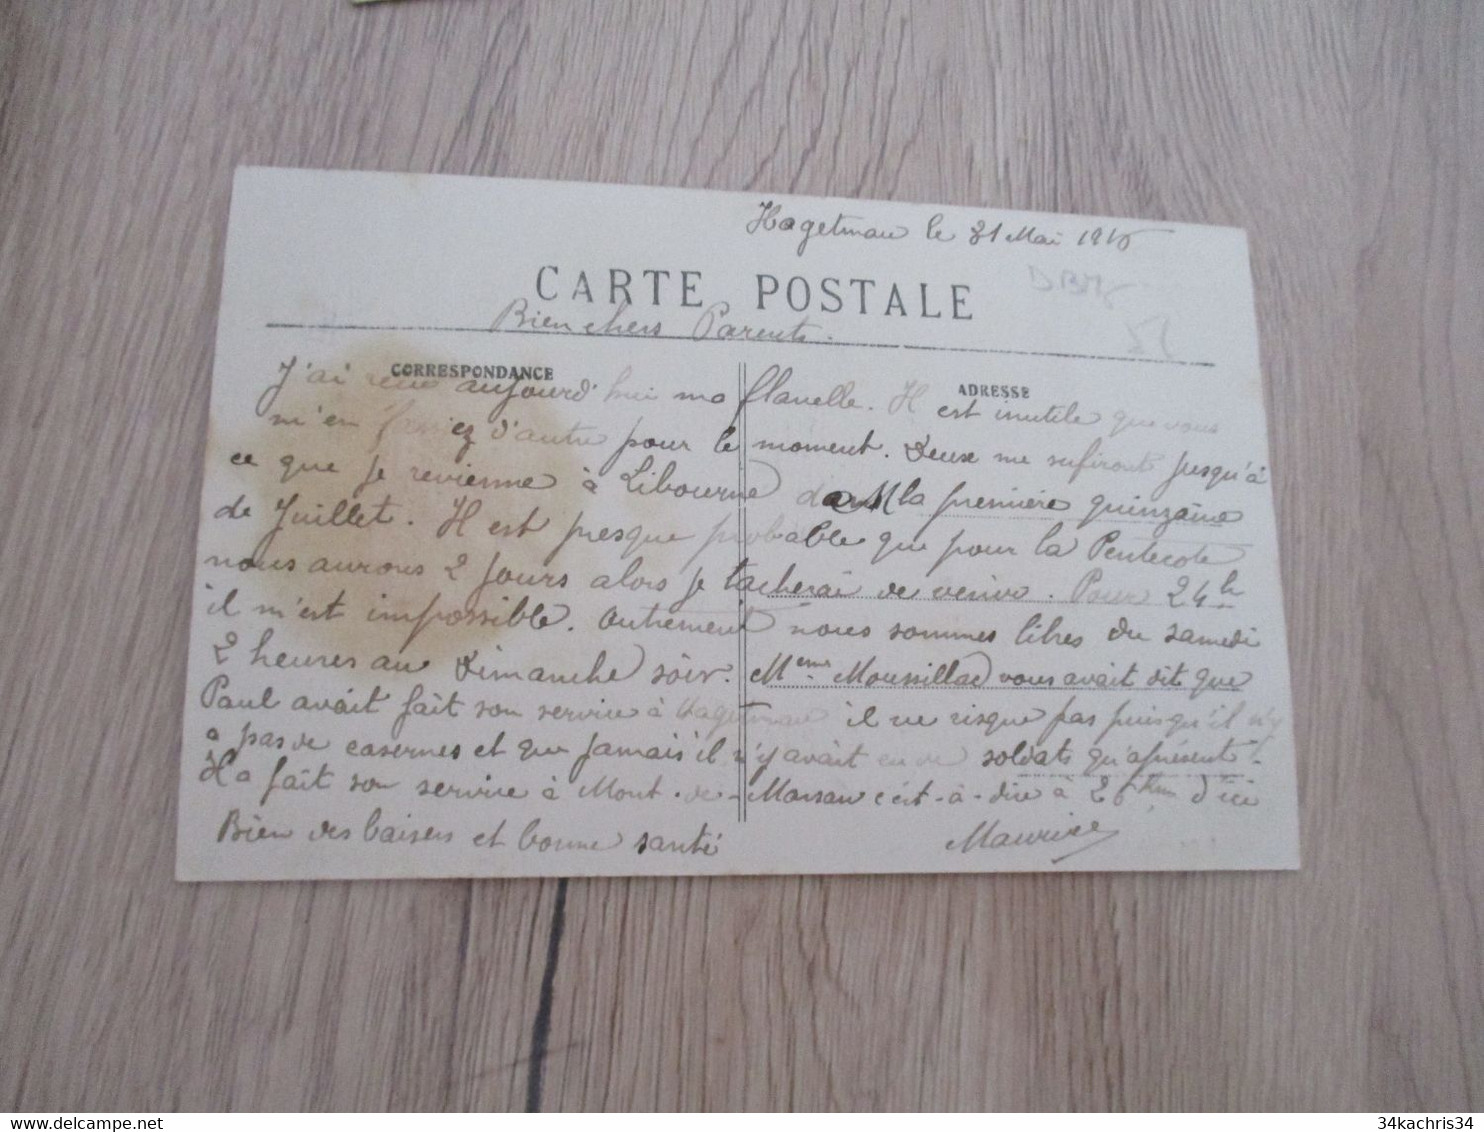 Hagetmau le 31 Mai 1916
CARTE POSTALE
Bien chers Parents.
CORRESPONDANCE
ADRESSE
J'ai reçu aujourd'hui ma flanelle. Il est inutile que vous
m'en d'autre pour le moment. Deux me sufiront jusqu'à
ce que je revienne à Libourne dans la première quinzaine
de Juillet. Il est presque probable que pour la Pentecote
nous aurons 2 jours alors je tacherai de venir. Pour 24h
il m'est impossible. Autrement nous sommes libres du samedi
2 heures au Dimanche soir. Mme Moussillac vous avait dit que
Paul avait fait son service à Hagetmau il ne risque pas puisqu'il n'y
a pas de casernes et que jamais il n'y avait eu de soldats qu'à présent.
Il a fait son service à Mont-de-Marsan c'est-à-dire à 26 km d'ici
Bien des baisers et bonne santé
Maurice
34kachris34